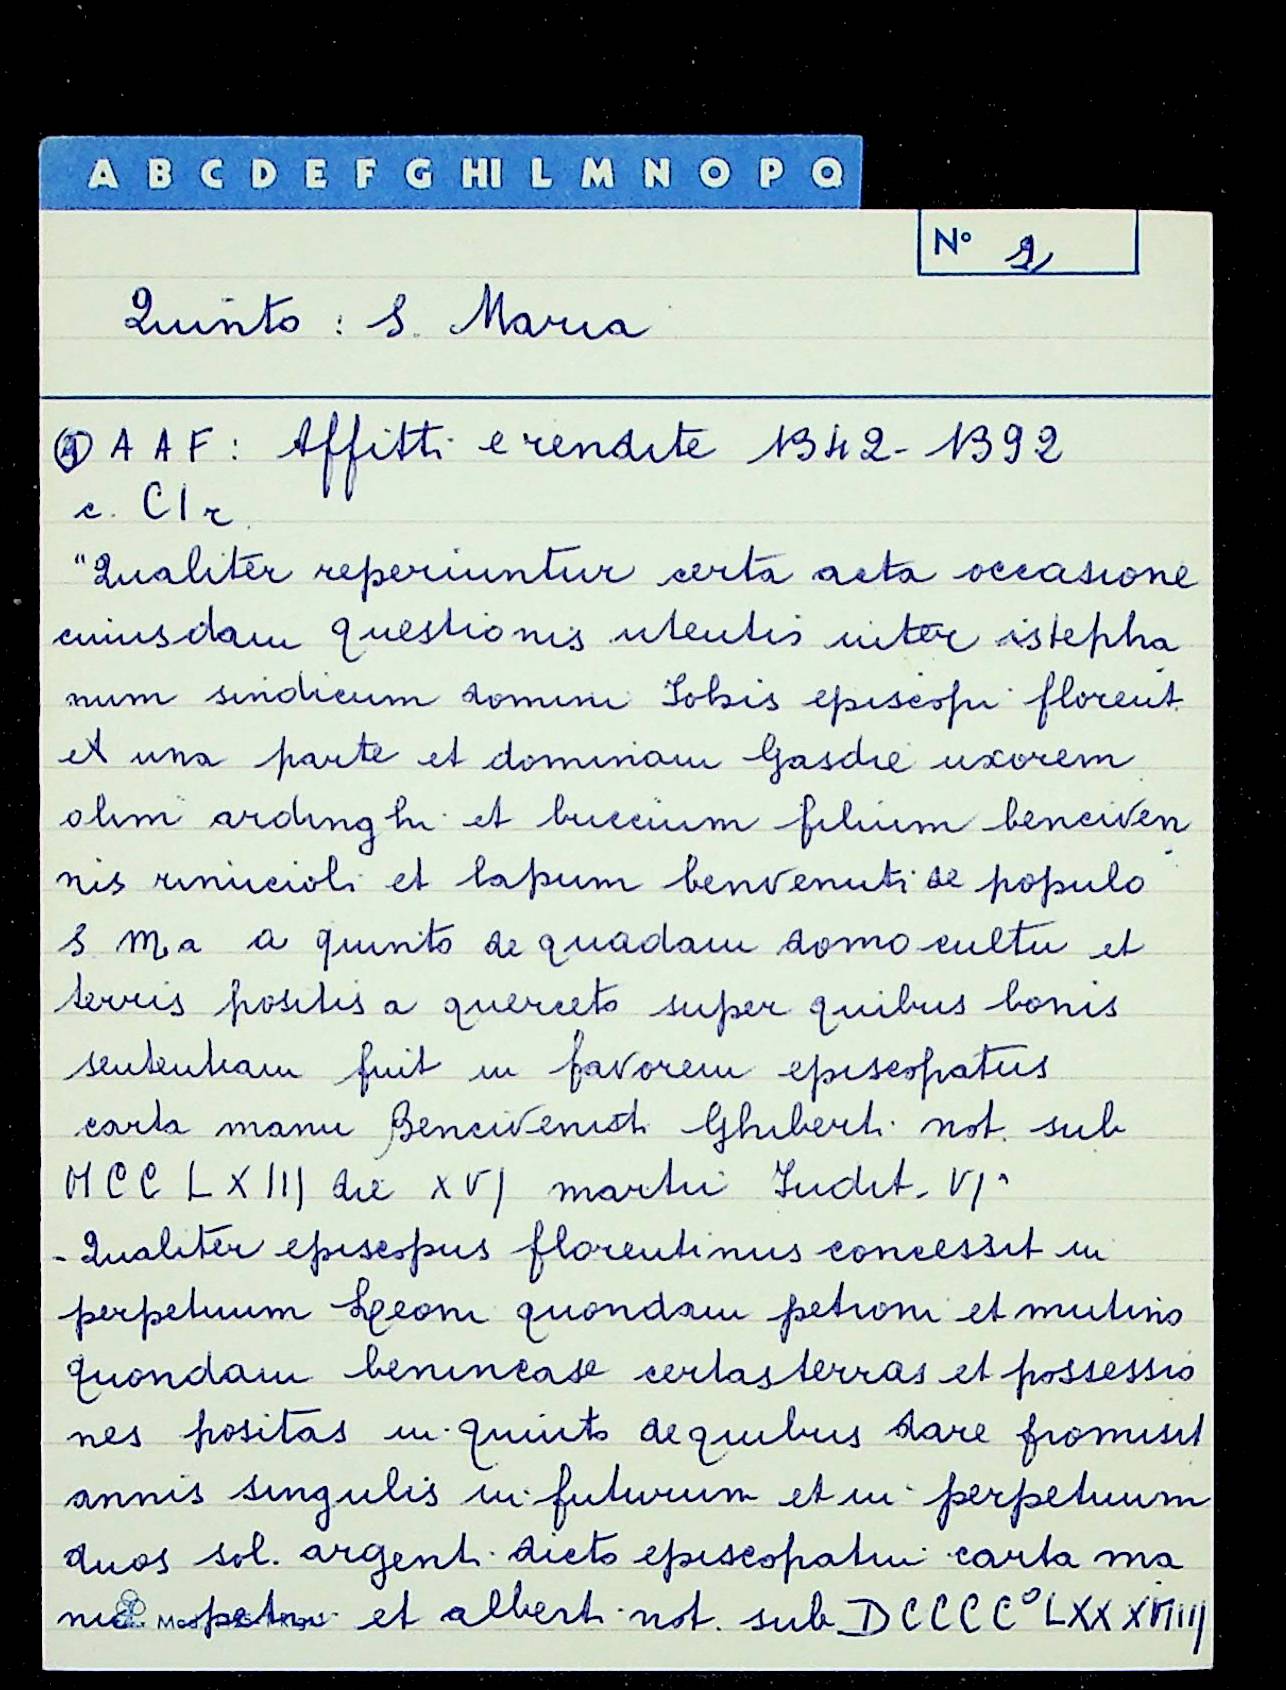 A B C D E F G HI L M N O P Q
N° 2
Quinto : S. Maria
A A F : Affitti e rendite 1342-1392
c. CI r.
"Qualiter reperiuntur certa acta occasione
cuiusdam questionis utentis inter istepha
num sindicum domini Iohis episcopi florent.
et una parte et dominam Gasdie uxorem
olim ardinghi et buccium filium benciven
nis rinucioli et lapum benvenuti de populo
S M.a a quinto de quadam domo cultu et
terris positis a querceto super quibus bonis
sententiam fuit in favorem episcopatus
carta manu Bencivenisti Ghiberti not. sub
MCCLXIII die XVI martii Indit. VIa
- Qualiter episcopus florentinus concessit in
perpetuum Leoni quondam petroni et mutino
quondam benincase certas terras et possessio
nes positas in quinto de quibus dare promisit
annis singulis in futurum et in perpetuum
duos sol. argenti dicto episcopatui carta ma
nu petri et alberti not. sub DCCCC°LXXXVIIII